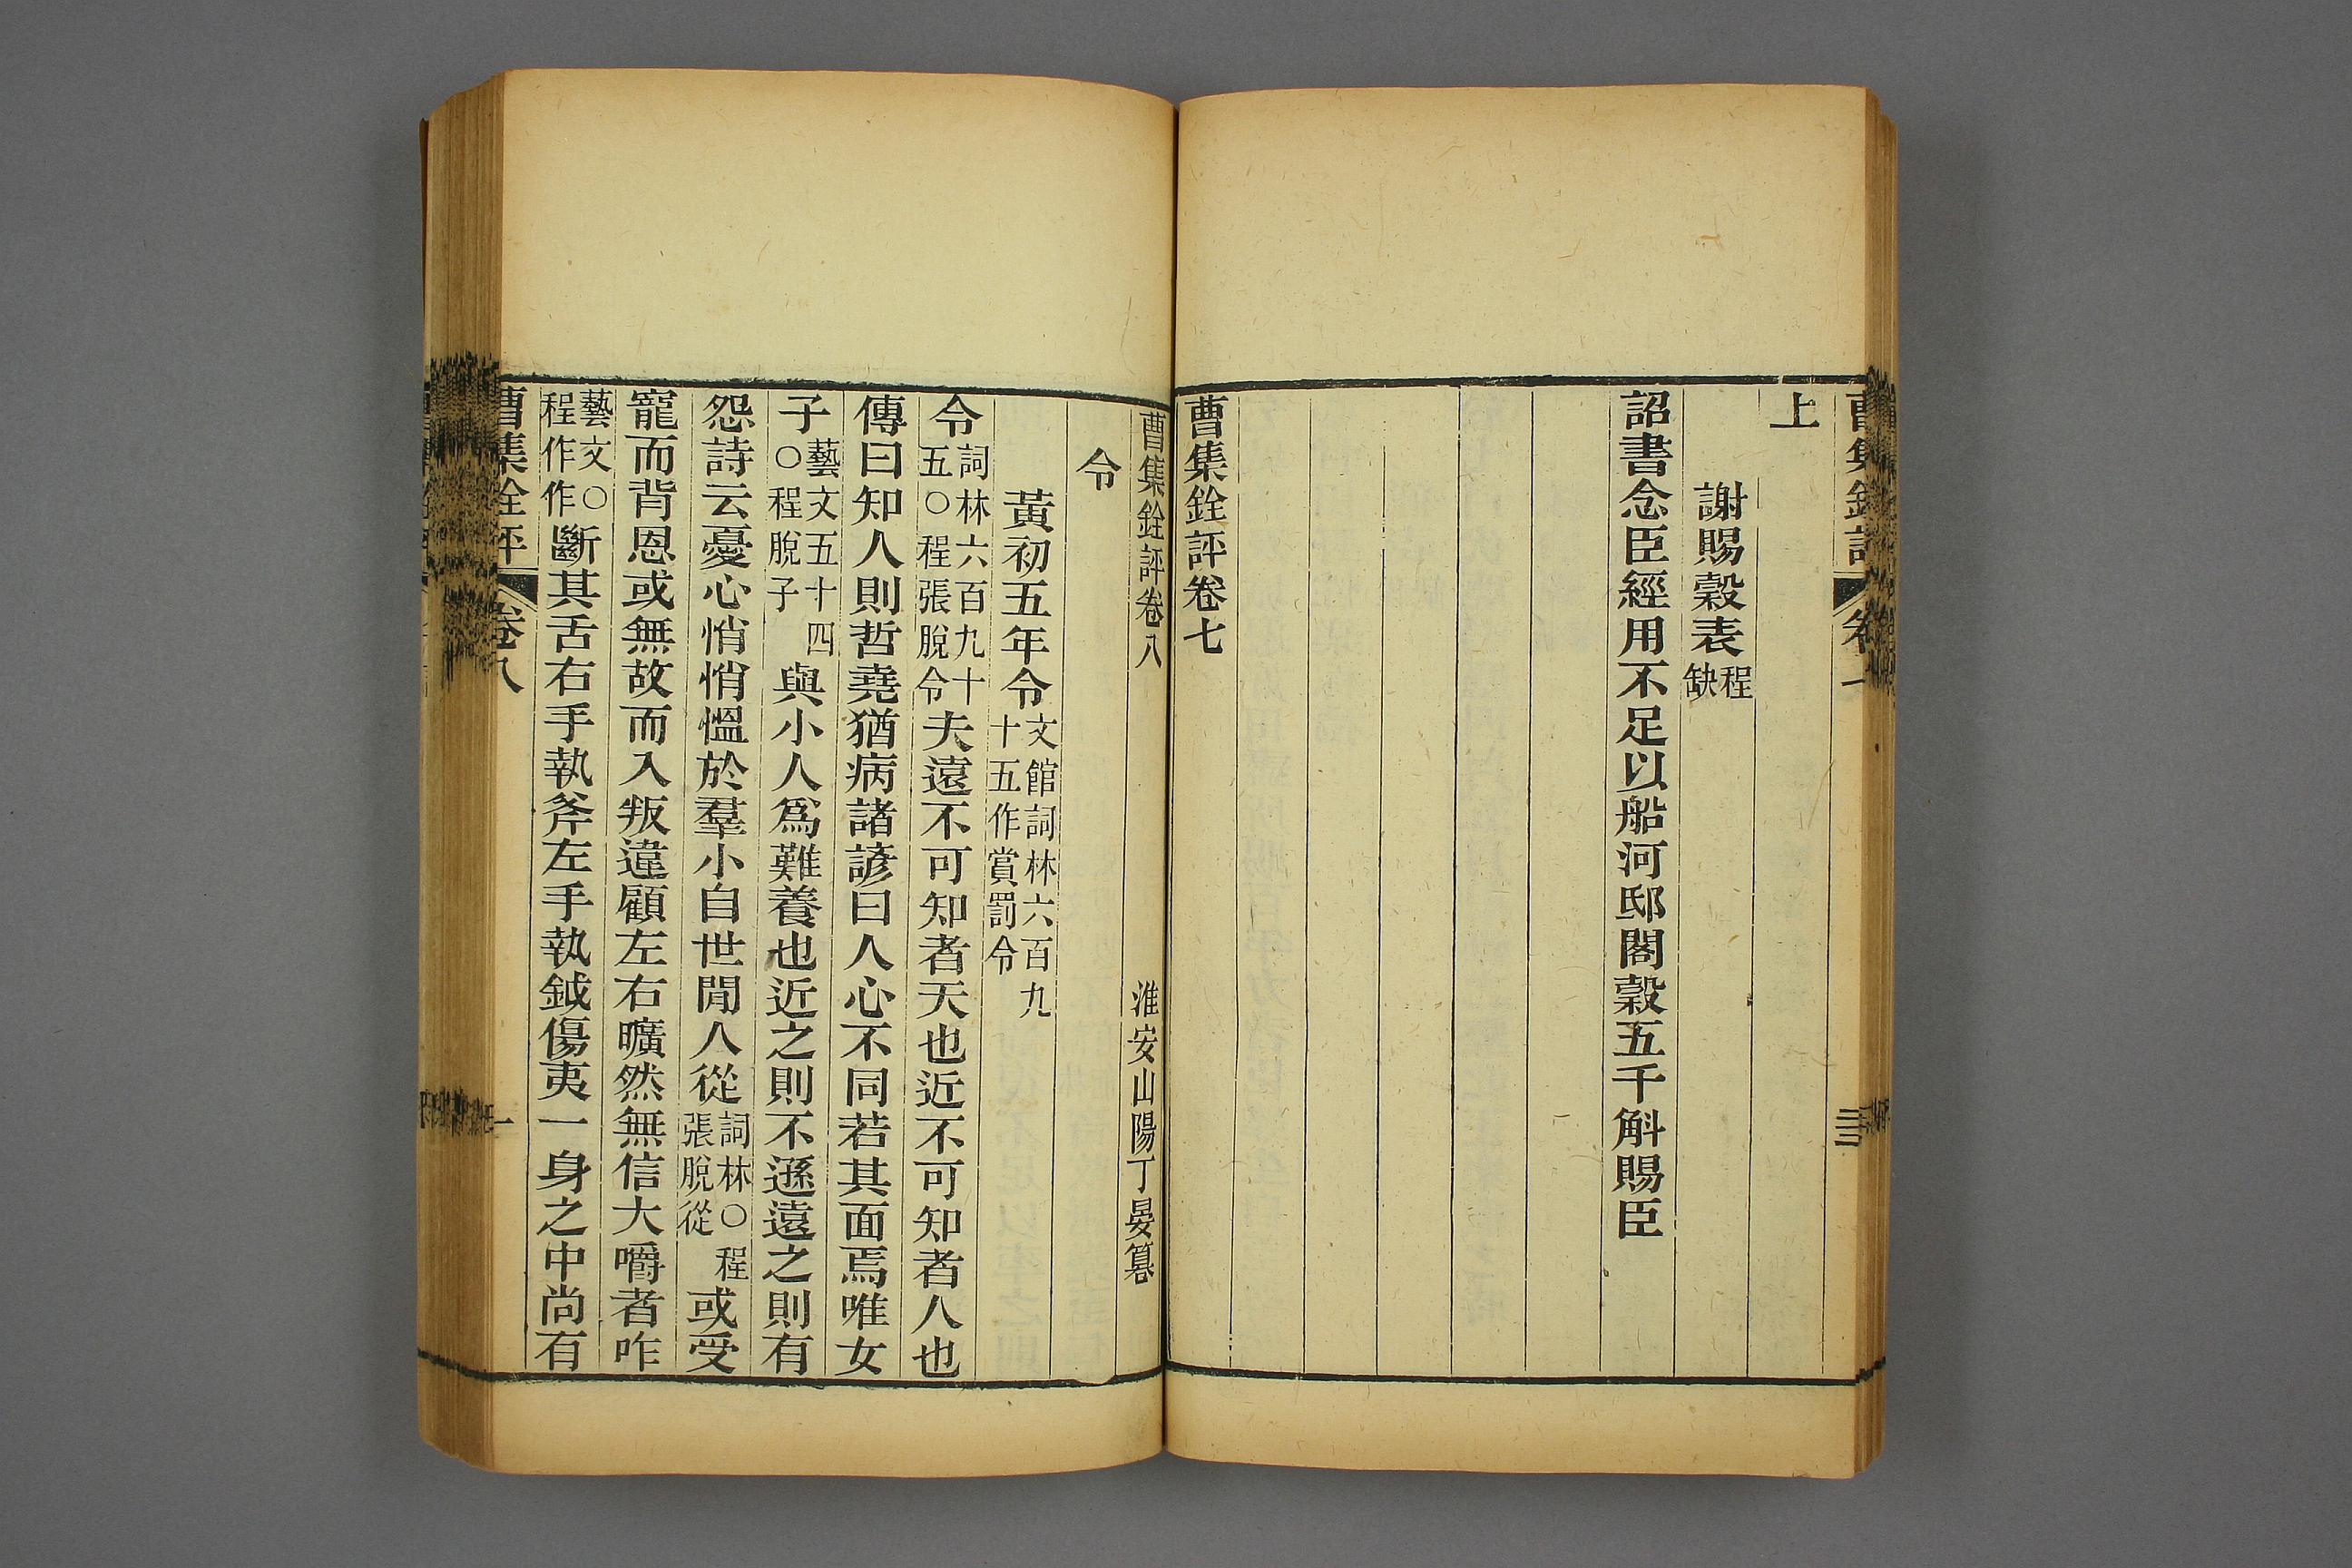 曹集銓評 卷
上
謝賜穀表程缺
詔書念臣經用不足以船河邸閣穀五千斛賜臣
曹集銓評卷七
曹集銓評卷八 淮安山陽丁晏纂
令
黃初五年令文館詞林六百九十五作賞罰令
令詞林六百九十五○程張脫令夫遠不可知者天也近不可知者人也
傳曰知人則哲堯猶病諸諺曰人心不同若其面焉唯女
子藝文五十四○程脫子與小人爲難養也近之則不遜遠之則有
怨詩云憂心悄悄慍於羣小自世閒人從詞林○程張脫從或受
寵而背恩或無故而入叛違顧左右曠然無信大嚼者咋
藝文○程作作斷其舌右手執斧左手執鉞傷夷一身之中尚有
曹集銓評 卷八 一